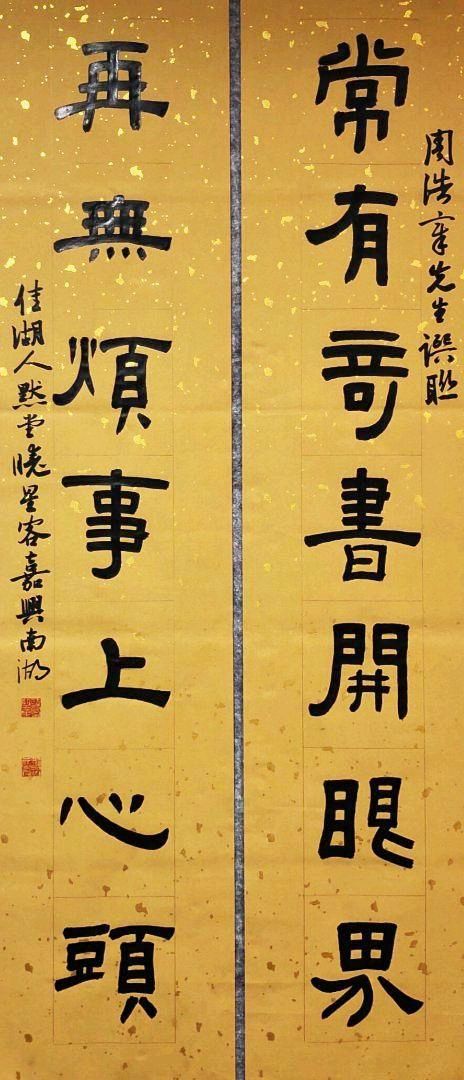 周浩先生譔聯
常有奇書開眼界
再無煩事上心頭
佳湖人默堂曉星客嘉興南湖